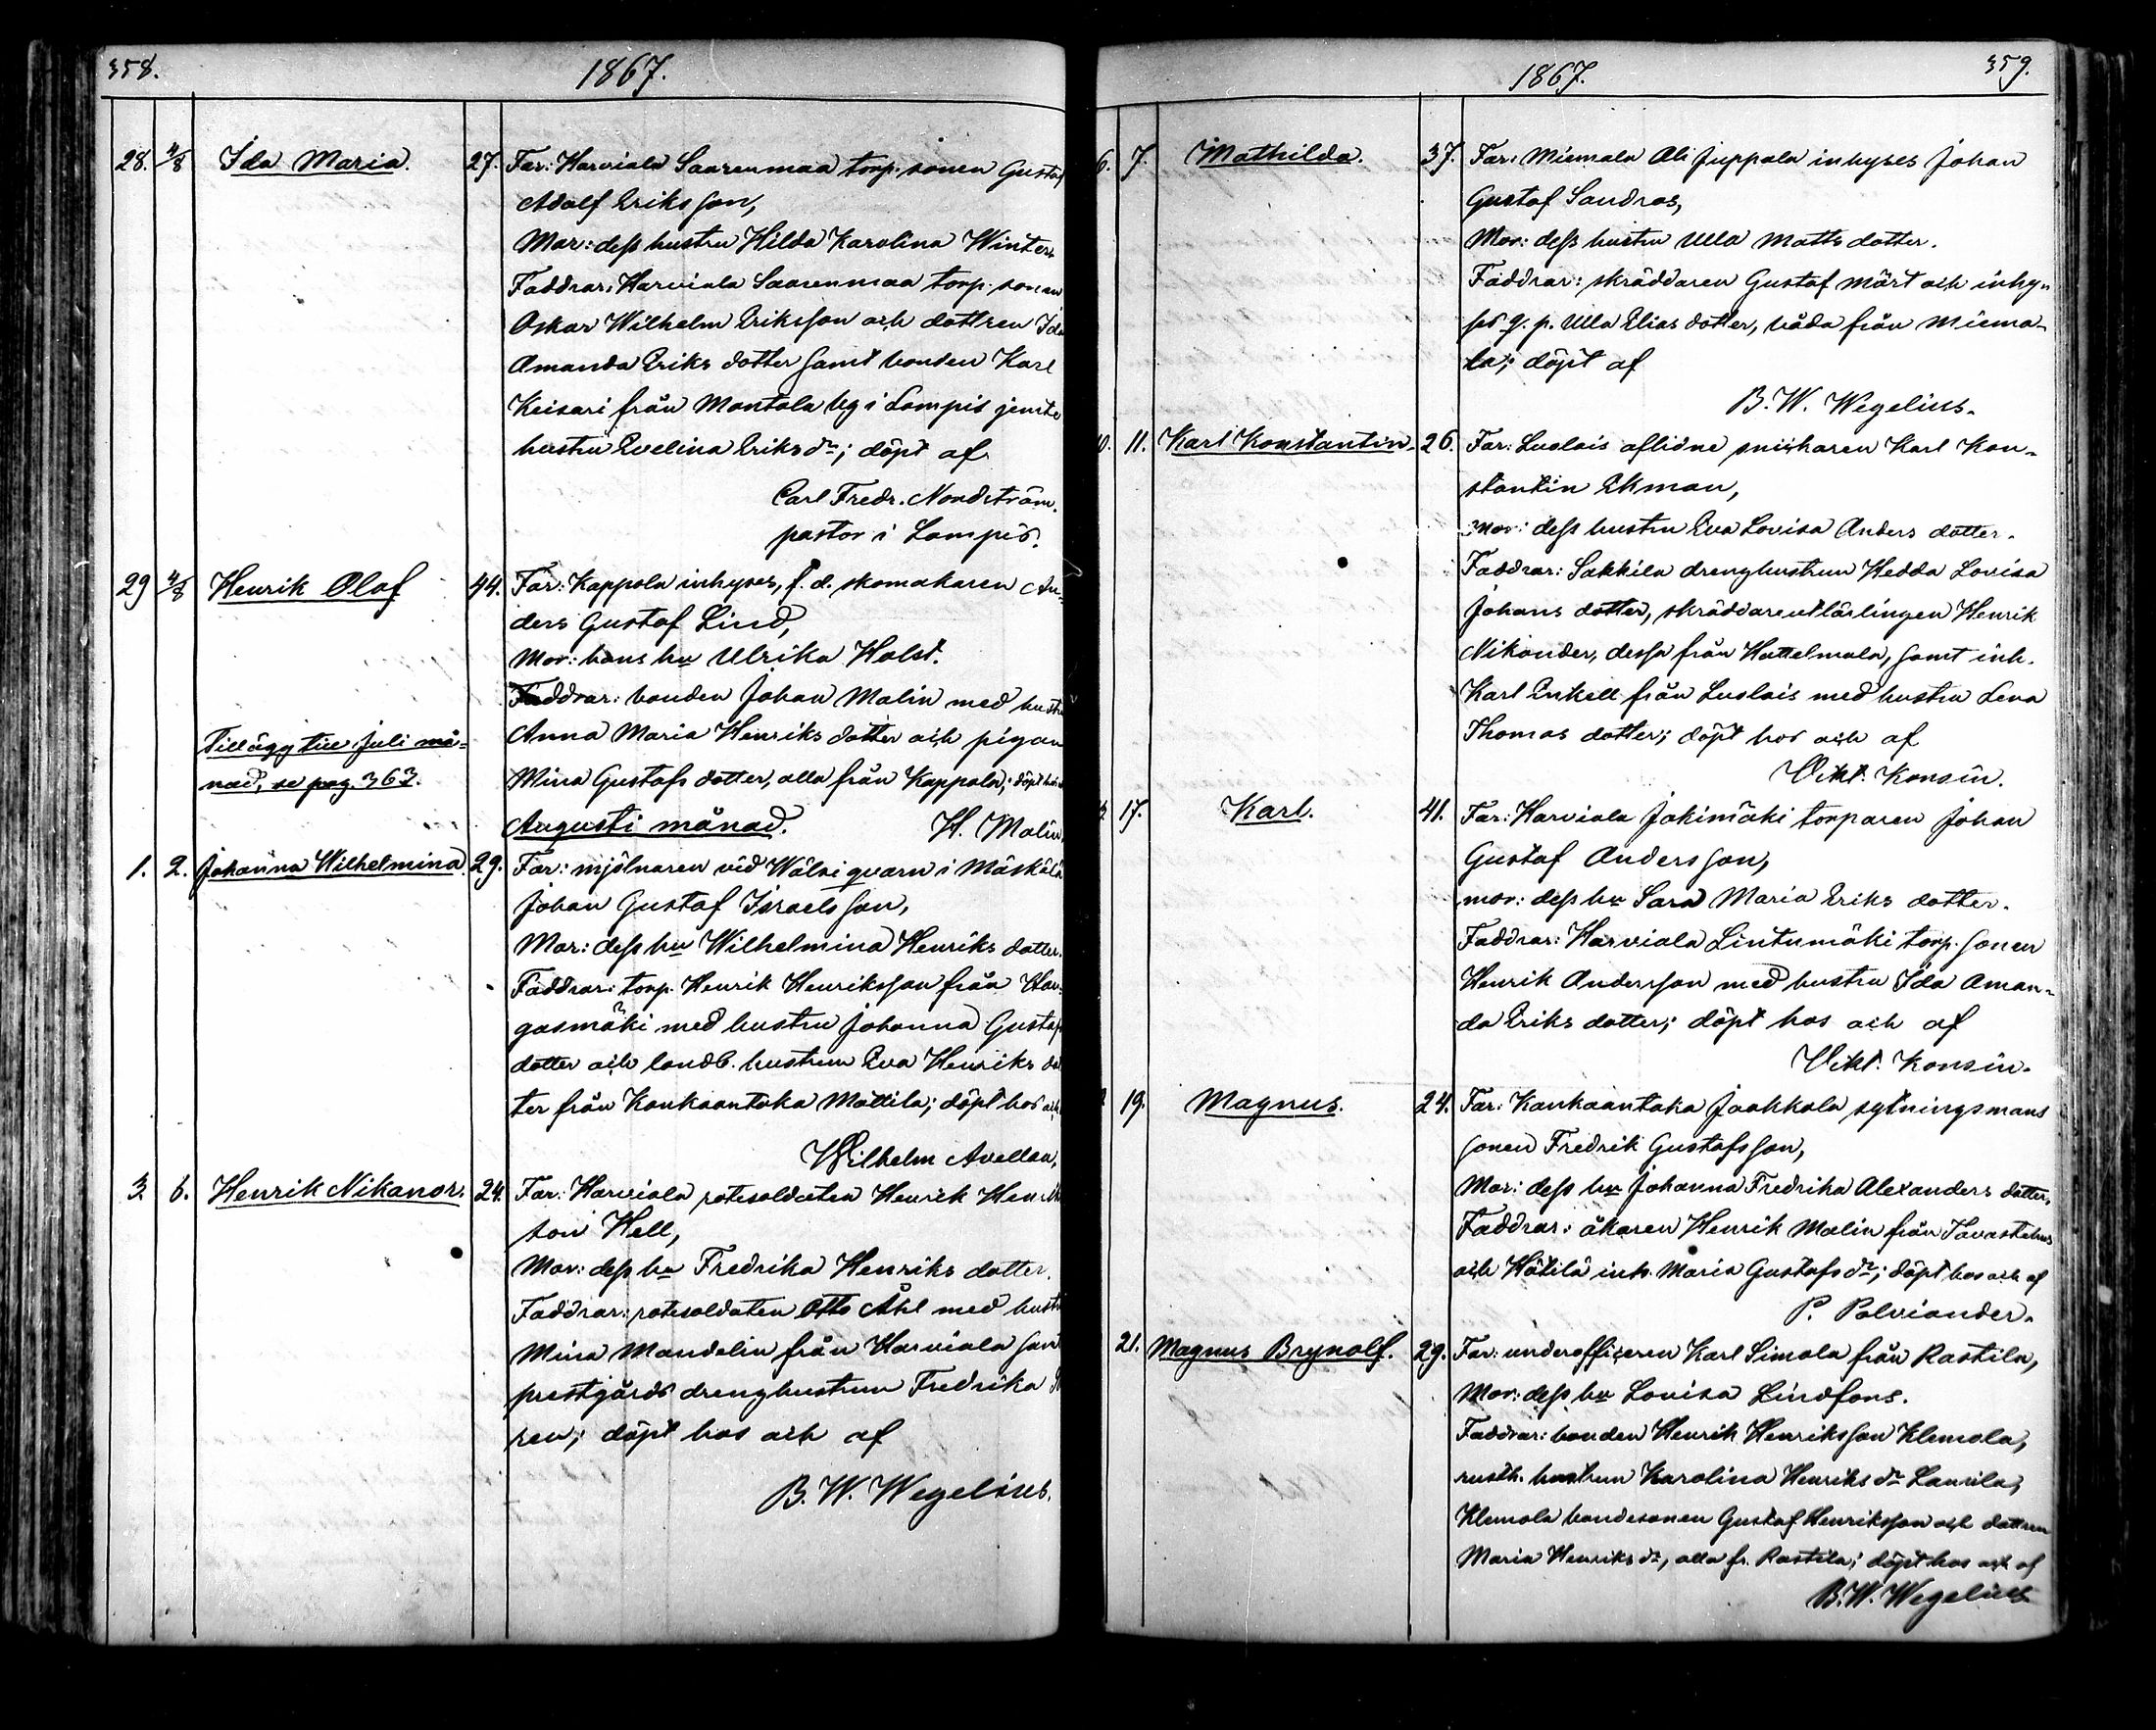 358.
1867.
28. 4/8 Ida Maria. 27. Far: Harviala Saarenmaa torp. sonen Gustaf
Adolf Eriksson,
Mor: dess hustru Hilda Karolina Winter.
Faddrar: Harviala Saarenmaa torp. sonen
Oskar Wilhelm Eriksson och dottren Ida
Amanda Eriks dotter samt bonden Karl
Keisari från Montola by i Lampis jemte
hustru Evelina Eriks dr; döpt af
Carl Fredr. Nordström.
pastor i Lampis.
29 4/8 Henrik Olof 44. Far: Kappola inhyses, f. d. skomakaren An-
ders Gustaf Lind,
Mor: hans hu Ulrika Holst.
Faddrar: bonden Johan Malin med hustru
Anna Maria Henriks dotter och pigan
Tillägg till Juli må-
nad, se pag. 363.
Mina Gustafs dotter, alla från Kappola; döpt
Augusti månad. H. Malin.
1. 2. Johanna Wilhelmina 29. Far: mjölnaren vid Wälsi qvarn i Mäskälä
Johan Gustaf Israelsson,
Mor: dess hu Wilhelmina Henriks dotter.
Faddrar: torp. Henrik Henriksson från Han-
gasmäki med hustru Johanna Gustafs
dotter och landb. hustrun Eva Henriks dot
ter från Kankaantaka Mattila; döpt hos och
Wilhelm Avellan.
3. 6. Henrik Nikanor. 24. Far: Harviala rotesoldaten Henrik Henriks
son Hell,
Mor: dess hu Fredrika Henriks dotter.
Faddrar: rotesoldaten Otto Åhl med hustru
Mina Mandelin från Harviala samt
prestgårds drenghustrun Fredrika
ren; döpt hos och af
B. W. Wegelius.
359.
1867.
6. 7. Mathilda. 37. Far: Miemala Ali Juppala inhyses Johan
Gustaf Sandras,
Mor: dess hustru Ulla Matts dotter.
Faddrar: skräddaren Gustaf Mört och inhy-
ses q. p. Ulla Elias dotter, båda från Miema-
la; döpt af
B. W. Wegelius.
11. Karl Konstantin. 26. Far: Luolais aflidne snickaren Karl Kon-
stantin Ekman,
Mor: dess hustru Eva Lovisa Anders dotter.
Faddrar: Sakkila drenghustrun Hedda Lovisa
Johans dotter, skräddarelärlingen Henrik
Nikander, dessa från Hattelmala, samt inh.
Karl Enkell från Luolais med hustru Lena
Thomas dotter; döpt hos och af
Vikt. Konsin.
17. Karl. 41. Far: Harviala Jokimäki torparen Johan
Gustaf Andersson,
mor: dess hu Sara Maria Eriks dotter.
Faddrar: Harviala Lintumäki torp. sonen
Henrik Andersson med hustru Ida Aman-
da Eriks dotter; döpt hos och af
Vikt. Konsin.
19. Magnus. 24. Far: Kankaantaka Jaakkola sytningsmans
sonen Fredrik Gustafsson,
Mor: dess hu Johanna Fredrika Alexanders dotter.
Faddrar: åkaren Henrik Malin från Tavastehus
och Hätilä inh. Maria Gustafs dr; döpt hos och af
P. Polviander.
21. Magnus Brynolf. 29. Far: underofficeren Karl Simola från Rastila,
Mor: dess hu Lovisa Lindfors.
Faddrar: bonden Henrik Henriksson Klemola,
rusth. hustrun Karolina Henriks dr Laurila,
Klemola bondesonen Gustaf Henriksson och dottren
Maria Henriks dr, alla fr. Rastila; döpt hos och af
B. W. Wegelius